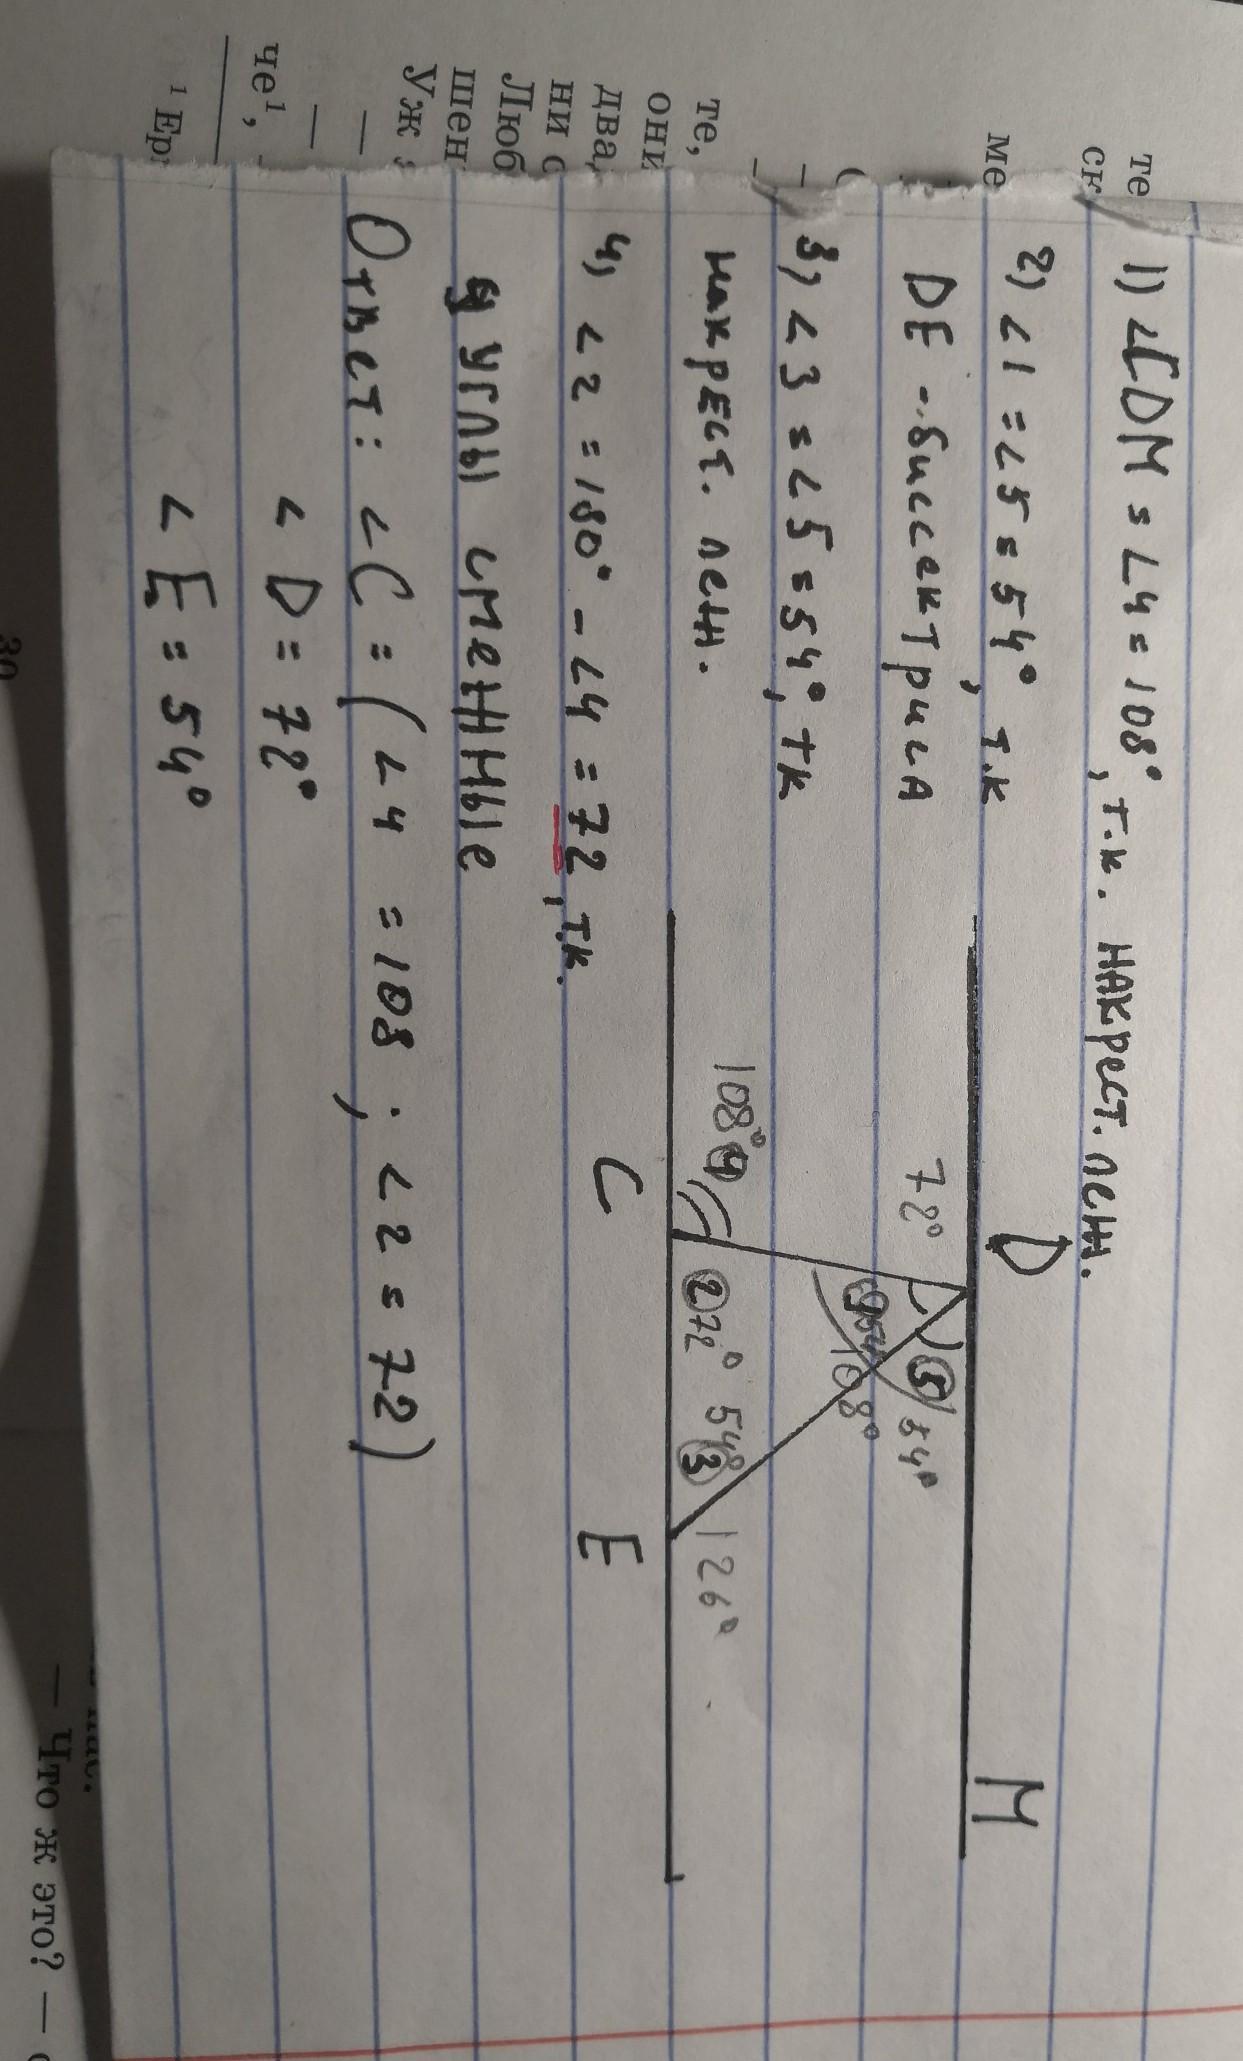 1) ∠CDM = ∠4 = 108°, т.к. накрест. леж.
2) ∠1 = ∠5 = 54°, т.к
DE - биссектриса
3) ∠3 = ∠5 = 54°, тк
накрест. леж.
4) ∠2 = 180° - ∠4 = 72, т.к.
углы смежные
Ответ: ∠C = (∠4 = 108; ∠2 = 72)
∠D = 72°
∠E = 54°
D
M
72°
5 54°
54°
108°
108° 4
2 72° 54° 3 126°
C
E
те
ск
ме
те,
они
два,
ни с
Люб
шен
Уж
—
—
че¹,
¹ Ер
30
— Что ж это? —